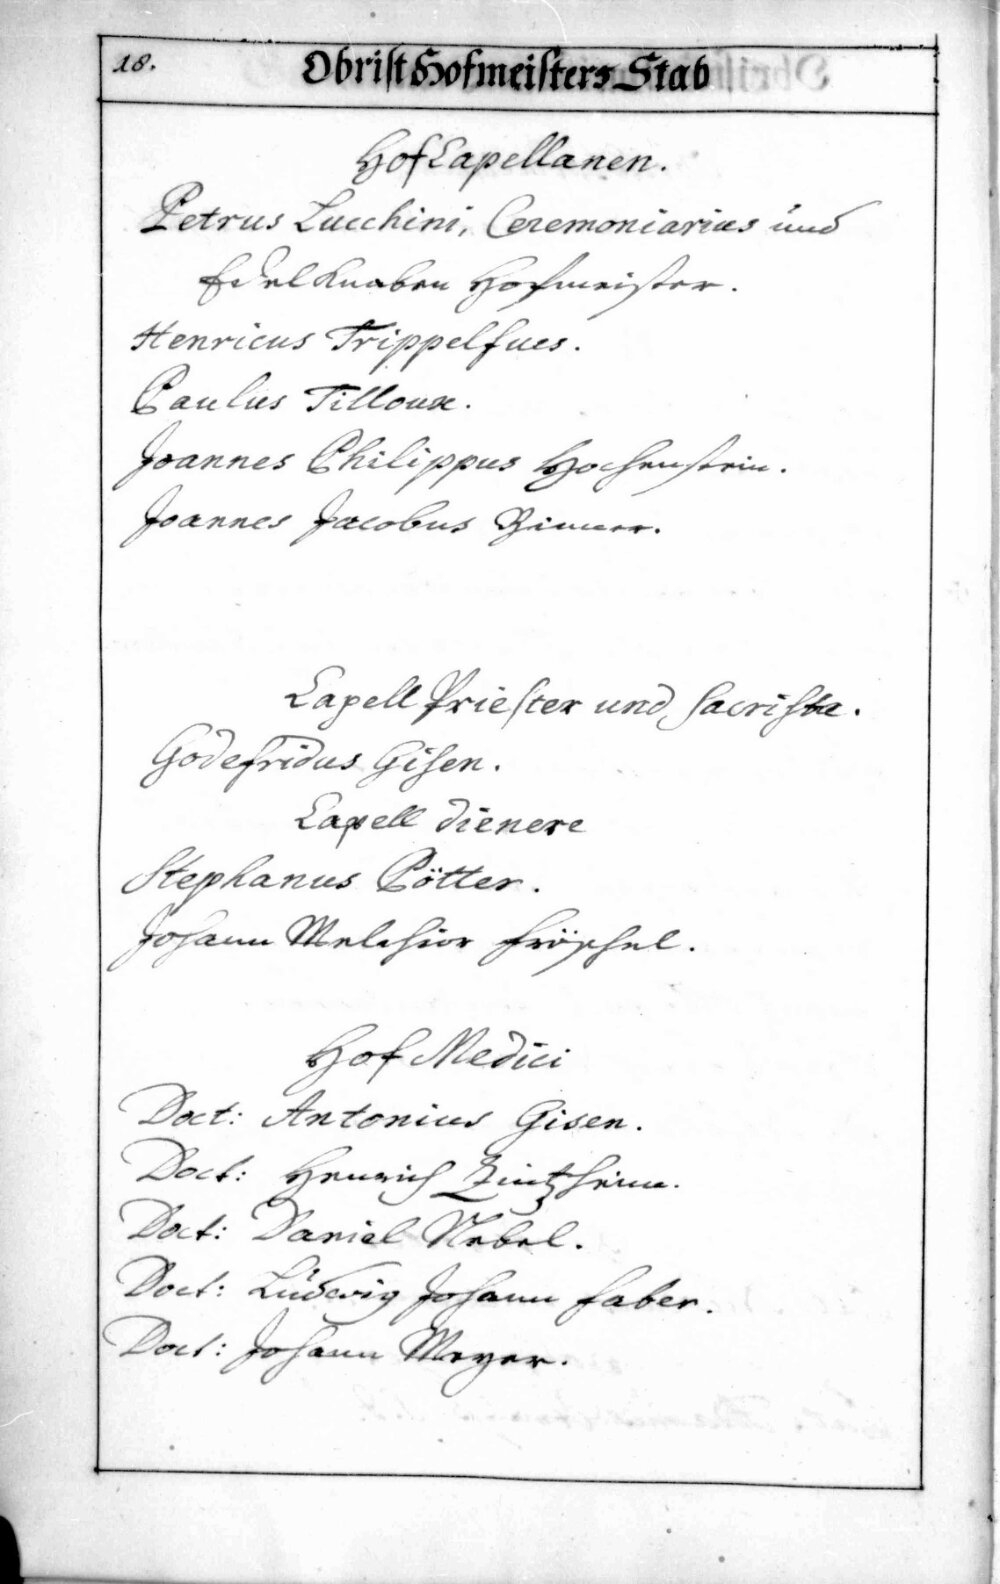 18.
Obrist Hofmeisters Stab
Hof Capellanen.
Petrus Lucchini, Ceremoniarius und
Edelknaben Hofmeister.
Henricus Trippelfues.
Paulus Tilloux.
Joannes Philippus Hochenstein.
Joannes Jacobus
Capell Priester und Sacrista.
Godefridus Gisen.
Capell dienere
Stephanus Pötter.
Johann Melchior Fröschel.
Hof Medici
Doct: Antonius Gisen.
Doct: Henrich
Doct: Daniel Nebel.
Doct: Lüdwig Johann Faber.
Doct: Johann Meyer.